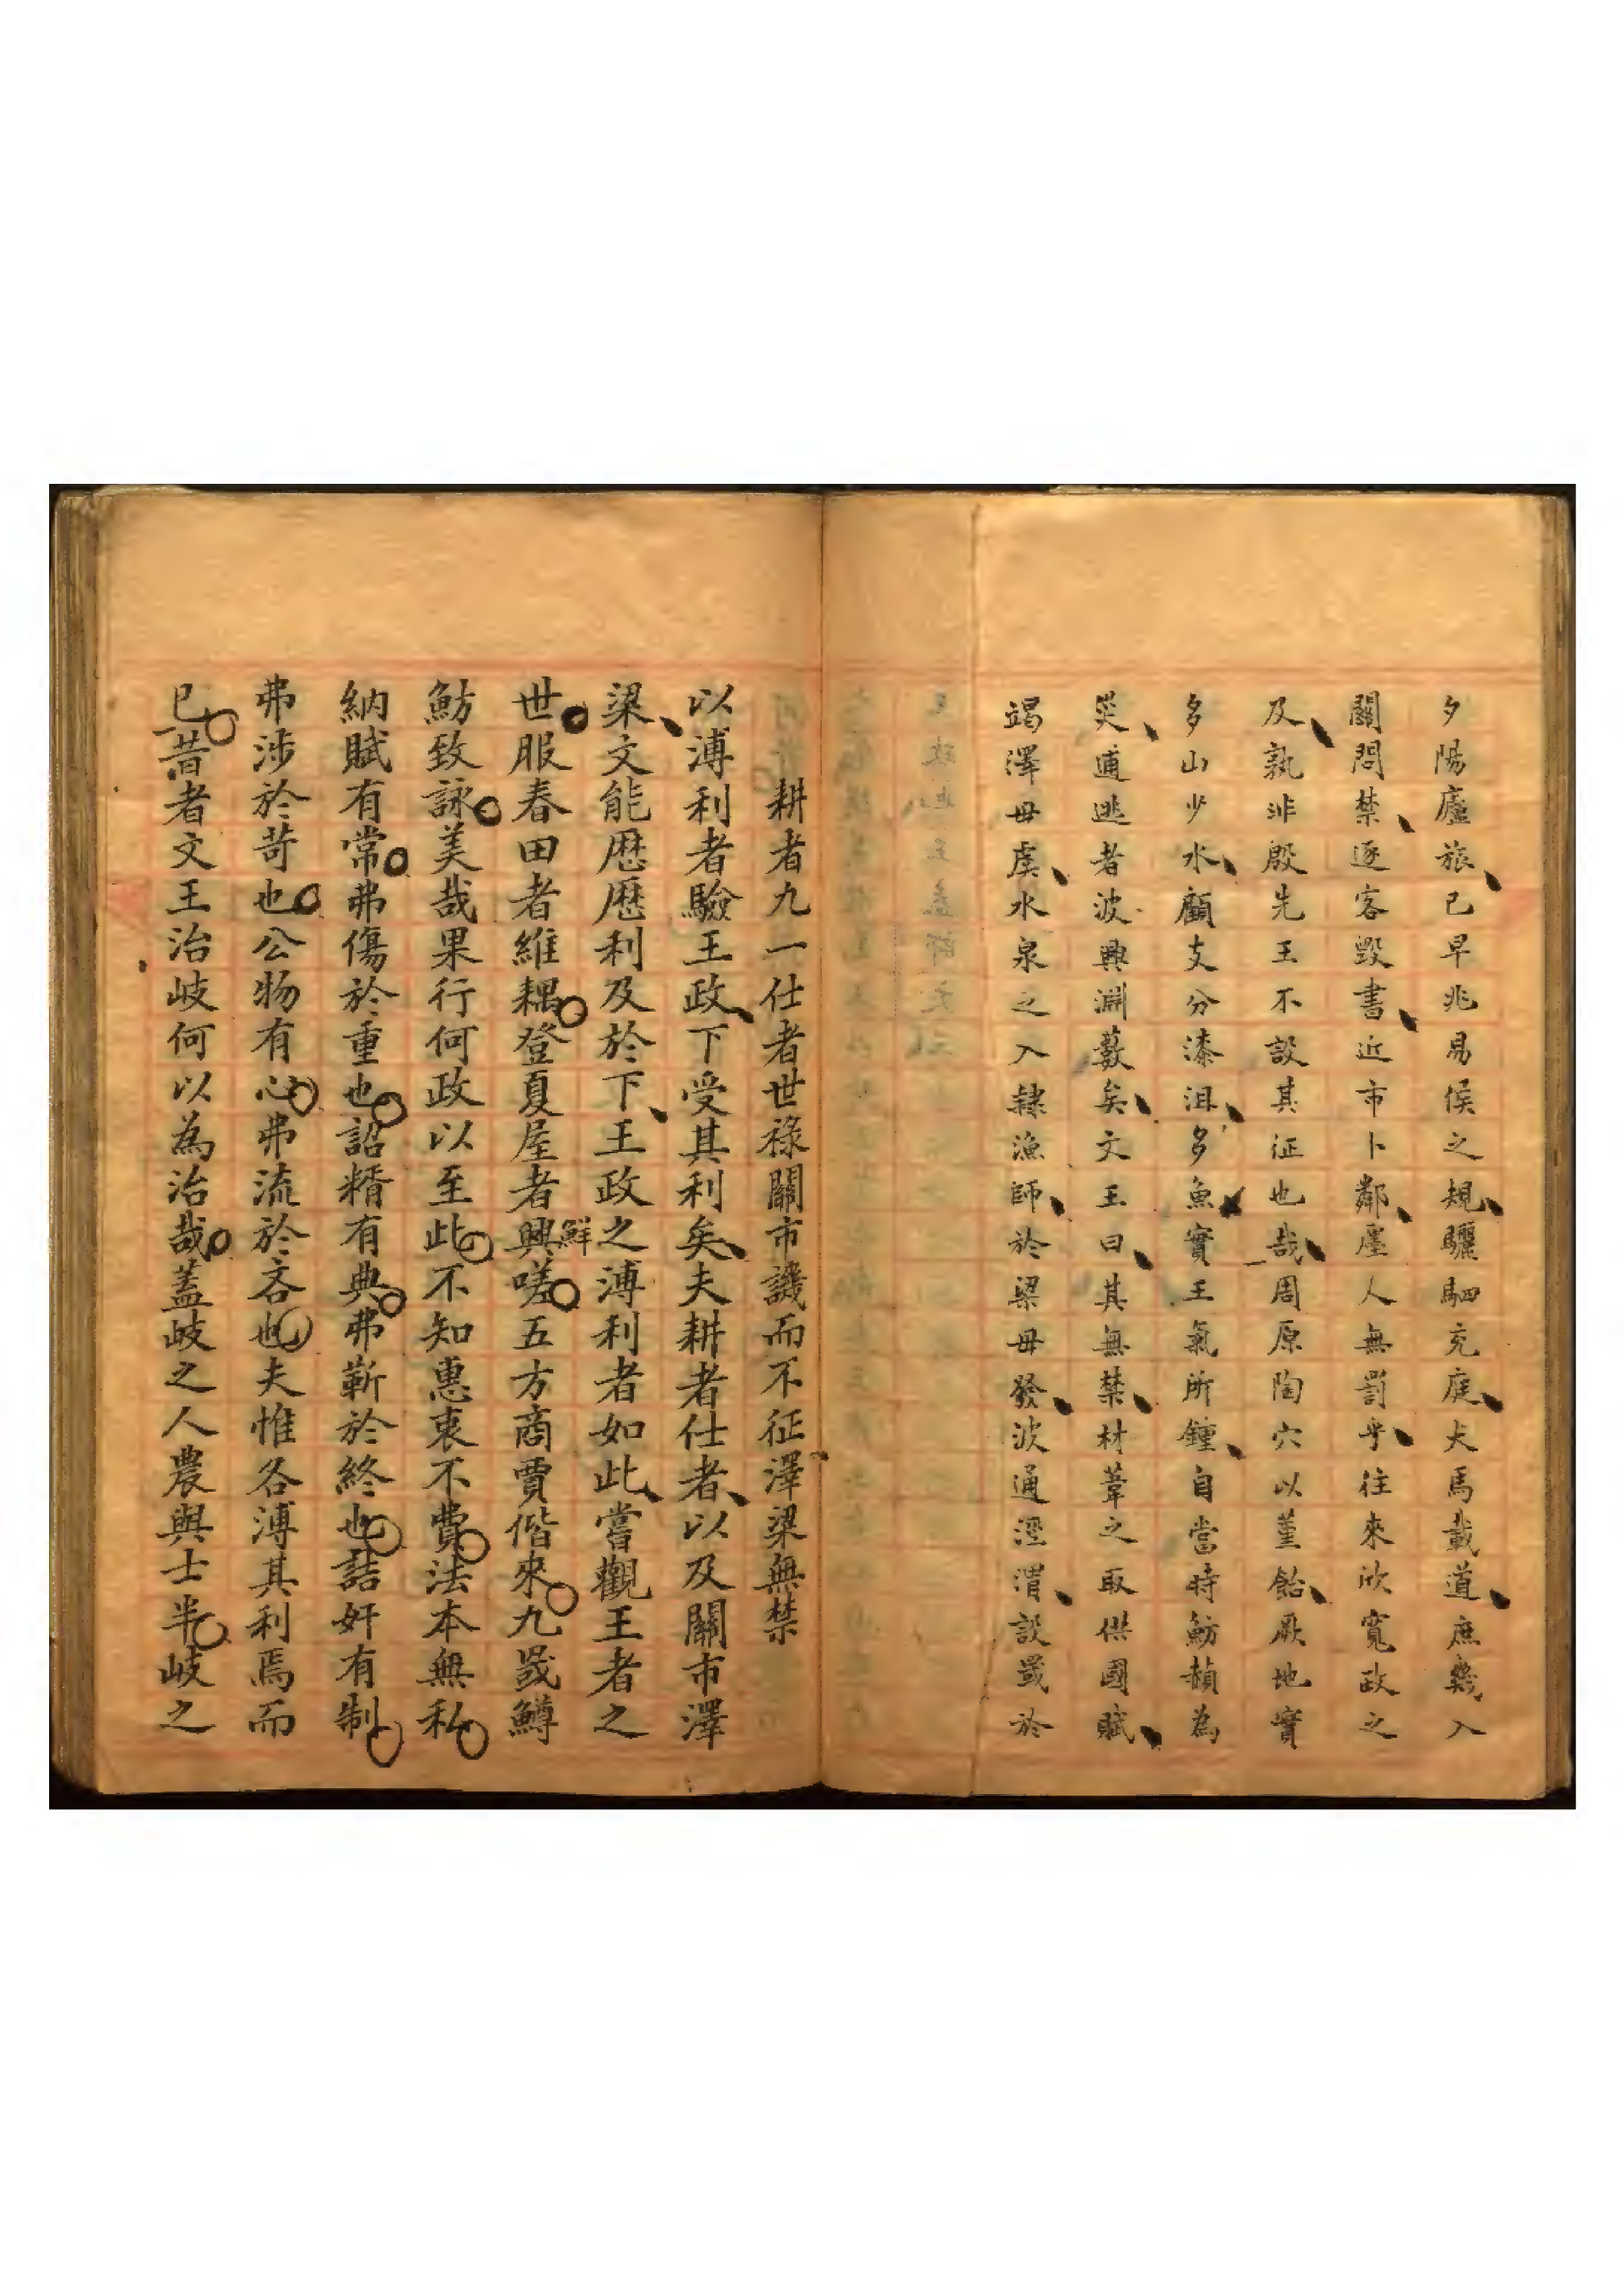 夕陽廬旅已早兆易侯之規驪駟充庭犬馬載道庶幾入
關問禁逐客毀書近市卜鄰廛人無罰乎往來欣寬政之
及孰非殷先王不設其征也哉周原陶穴以堇飴厥地實
多山少水顧支分漆沮多魚實王氣所鍾自當時魴赬為
災逋逃者波興淵藪矣文王曰其無禁材葦之取供國賦
竭澤毋虞水泉之入隸漁師於梁毋發波通涇渭設罭於
耕者九一仕者世祿關市譏而不征澤梁無禁
以溥利者驗王政下受其利矣夫耕者仕者以及關市澤
梁文能歷歷利及於下王政之溥利者如此嘗觀王者之
世服春田者維耦登夏屋者興嗟五方商賈偕來九罭鱒
鮮
魴致詠美哉果行何政以至此不知惠衷不費法本無私
納賦有常弗傷於重也詔糈有典弗靳於終也詰奸有制
弗涉於苛也公物有心弗流於吝也夫惟各溥其利焉而
已昔者文王治岐何以為治哉蓋岐之人農與士半岐之